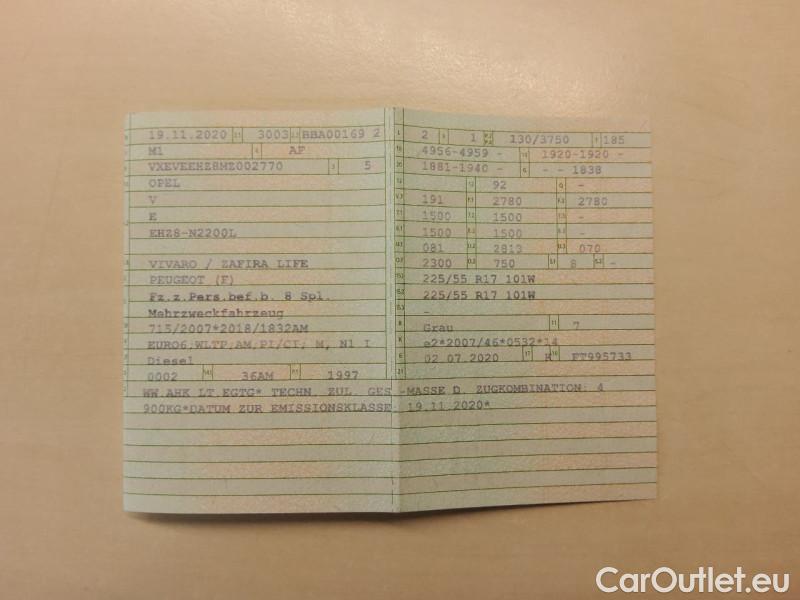 19.11.2020 3003 BBA00169 2
M1 AF
VXEVEEHZ8MZ002770 5
OPEL
V
E
EHZ8-N2200L
VIVARO / ZAFIRA LIFE
PEUGEOT (F)
Fz.z.Pers.bef.b. 8 Spl.
Mehrzweckfahrzeug
715/2007*2018/1832AM
EURO6;WLTP;AM;PI/CI; M, N1 I
Diesel
0002 36AM 1997
2 1 130/3750 185
4956-4959 - 1920-1920 -
1881-1940 - - - 1838
92 -
191 2780 2780
1500 1500 -
1500 1500 -
081 2813 070
2300 750 8 -
225/55 R17 101W
225/55 R17 101W
-
Grau 7
e2*2007/46*0532*14
02.07.2020 K FT995733
WW.AHK LT.EGTG* TECHN. ZUL. GES.-MASSE D. ZUGKOMBINATION: 4
900KG*DATUM ZUR EMISSIONSKLASSE: 19.11.2020*
CarOutlet.eu